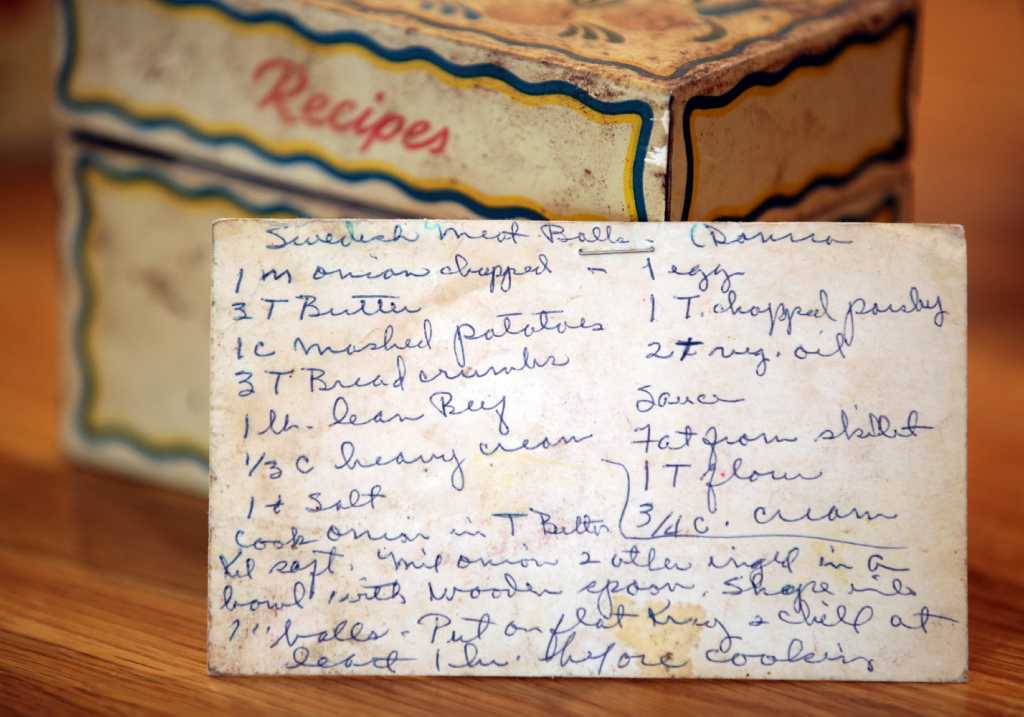 Recipes
Swedish Meat Balls - (Donna
1 m onion chopped -
3 T Butter
1 c mashed potatoes
3 T Bread crumbs
1 lb. lean Beef
1/3 c heavy cream
1 t Salt
1 egg
1 T. chopped parsley
2 T veg. oil
Sauce
Fat from skillet
1 T flour
3/4 c. cream
Cook onion in T Butter
til soft. Mix onion & other ingd in a
bowl with wooden spoon. Shape into
1" balls. Put on flat tray & chill at
least 1 hr. before cooking